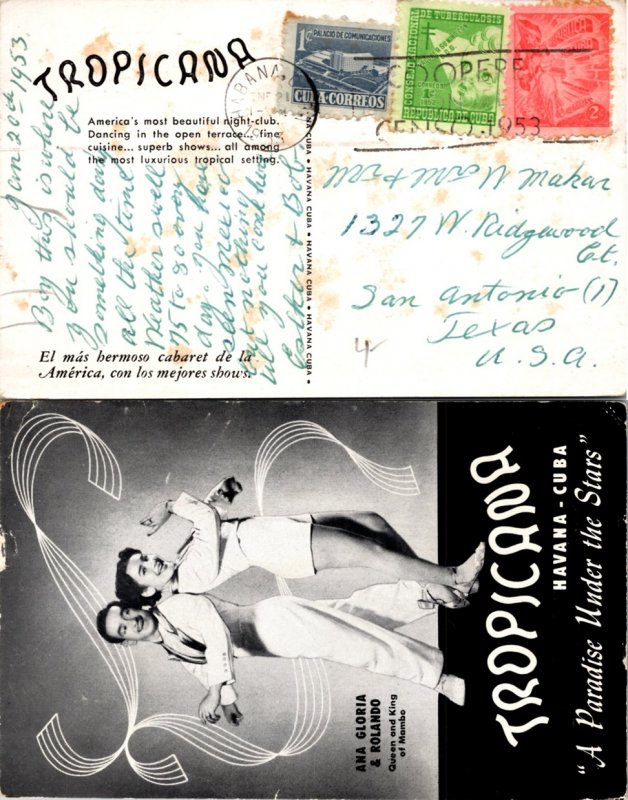 TROPICANA
America's most beautiful night-club.
Dancing in the open terrace... fine
cuisine... superb shows... all among
the most luxurious tropical setting.
Jan 20th 1953
Boy this is where
you should be
Something doing
all the time
Weather swell
75 to 80 every
day. you have
nothing
all you can
& Bob
El más hermoso cabaret de la
América, con los mejores shows.
HAVANA CUBA • HAVANA CUBA • HAVANA CUBA • HAVANA CUBA • HAVANA CUBA
1¢
PALACIO DE COMUNICACIONES
CUBA-CORREOS
CONSEJO NACIONAL DE TUBERCULOSIS
1¢
REPUBLICA DE CUBA
2¢
HABANA
ENE 21
COOPERE
CENSO 1953
Mr & Mrs W. Makar
1327 W. Ridgewood
Ct.
San Antonio (1)
Texas
U.S.A.
4
ANA GLORIA
& ROLANDO
Queen and King
of Mambo
TROPICANA
HAVANA - CUBA
"A Paradise Under the Stars"